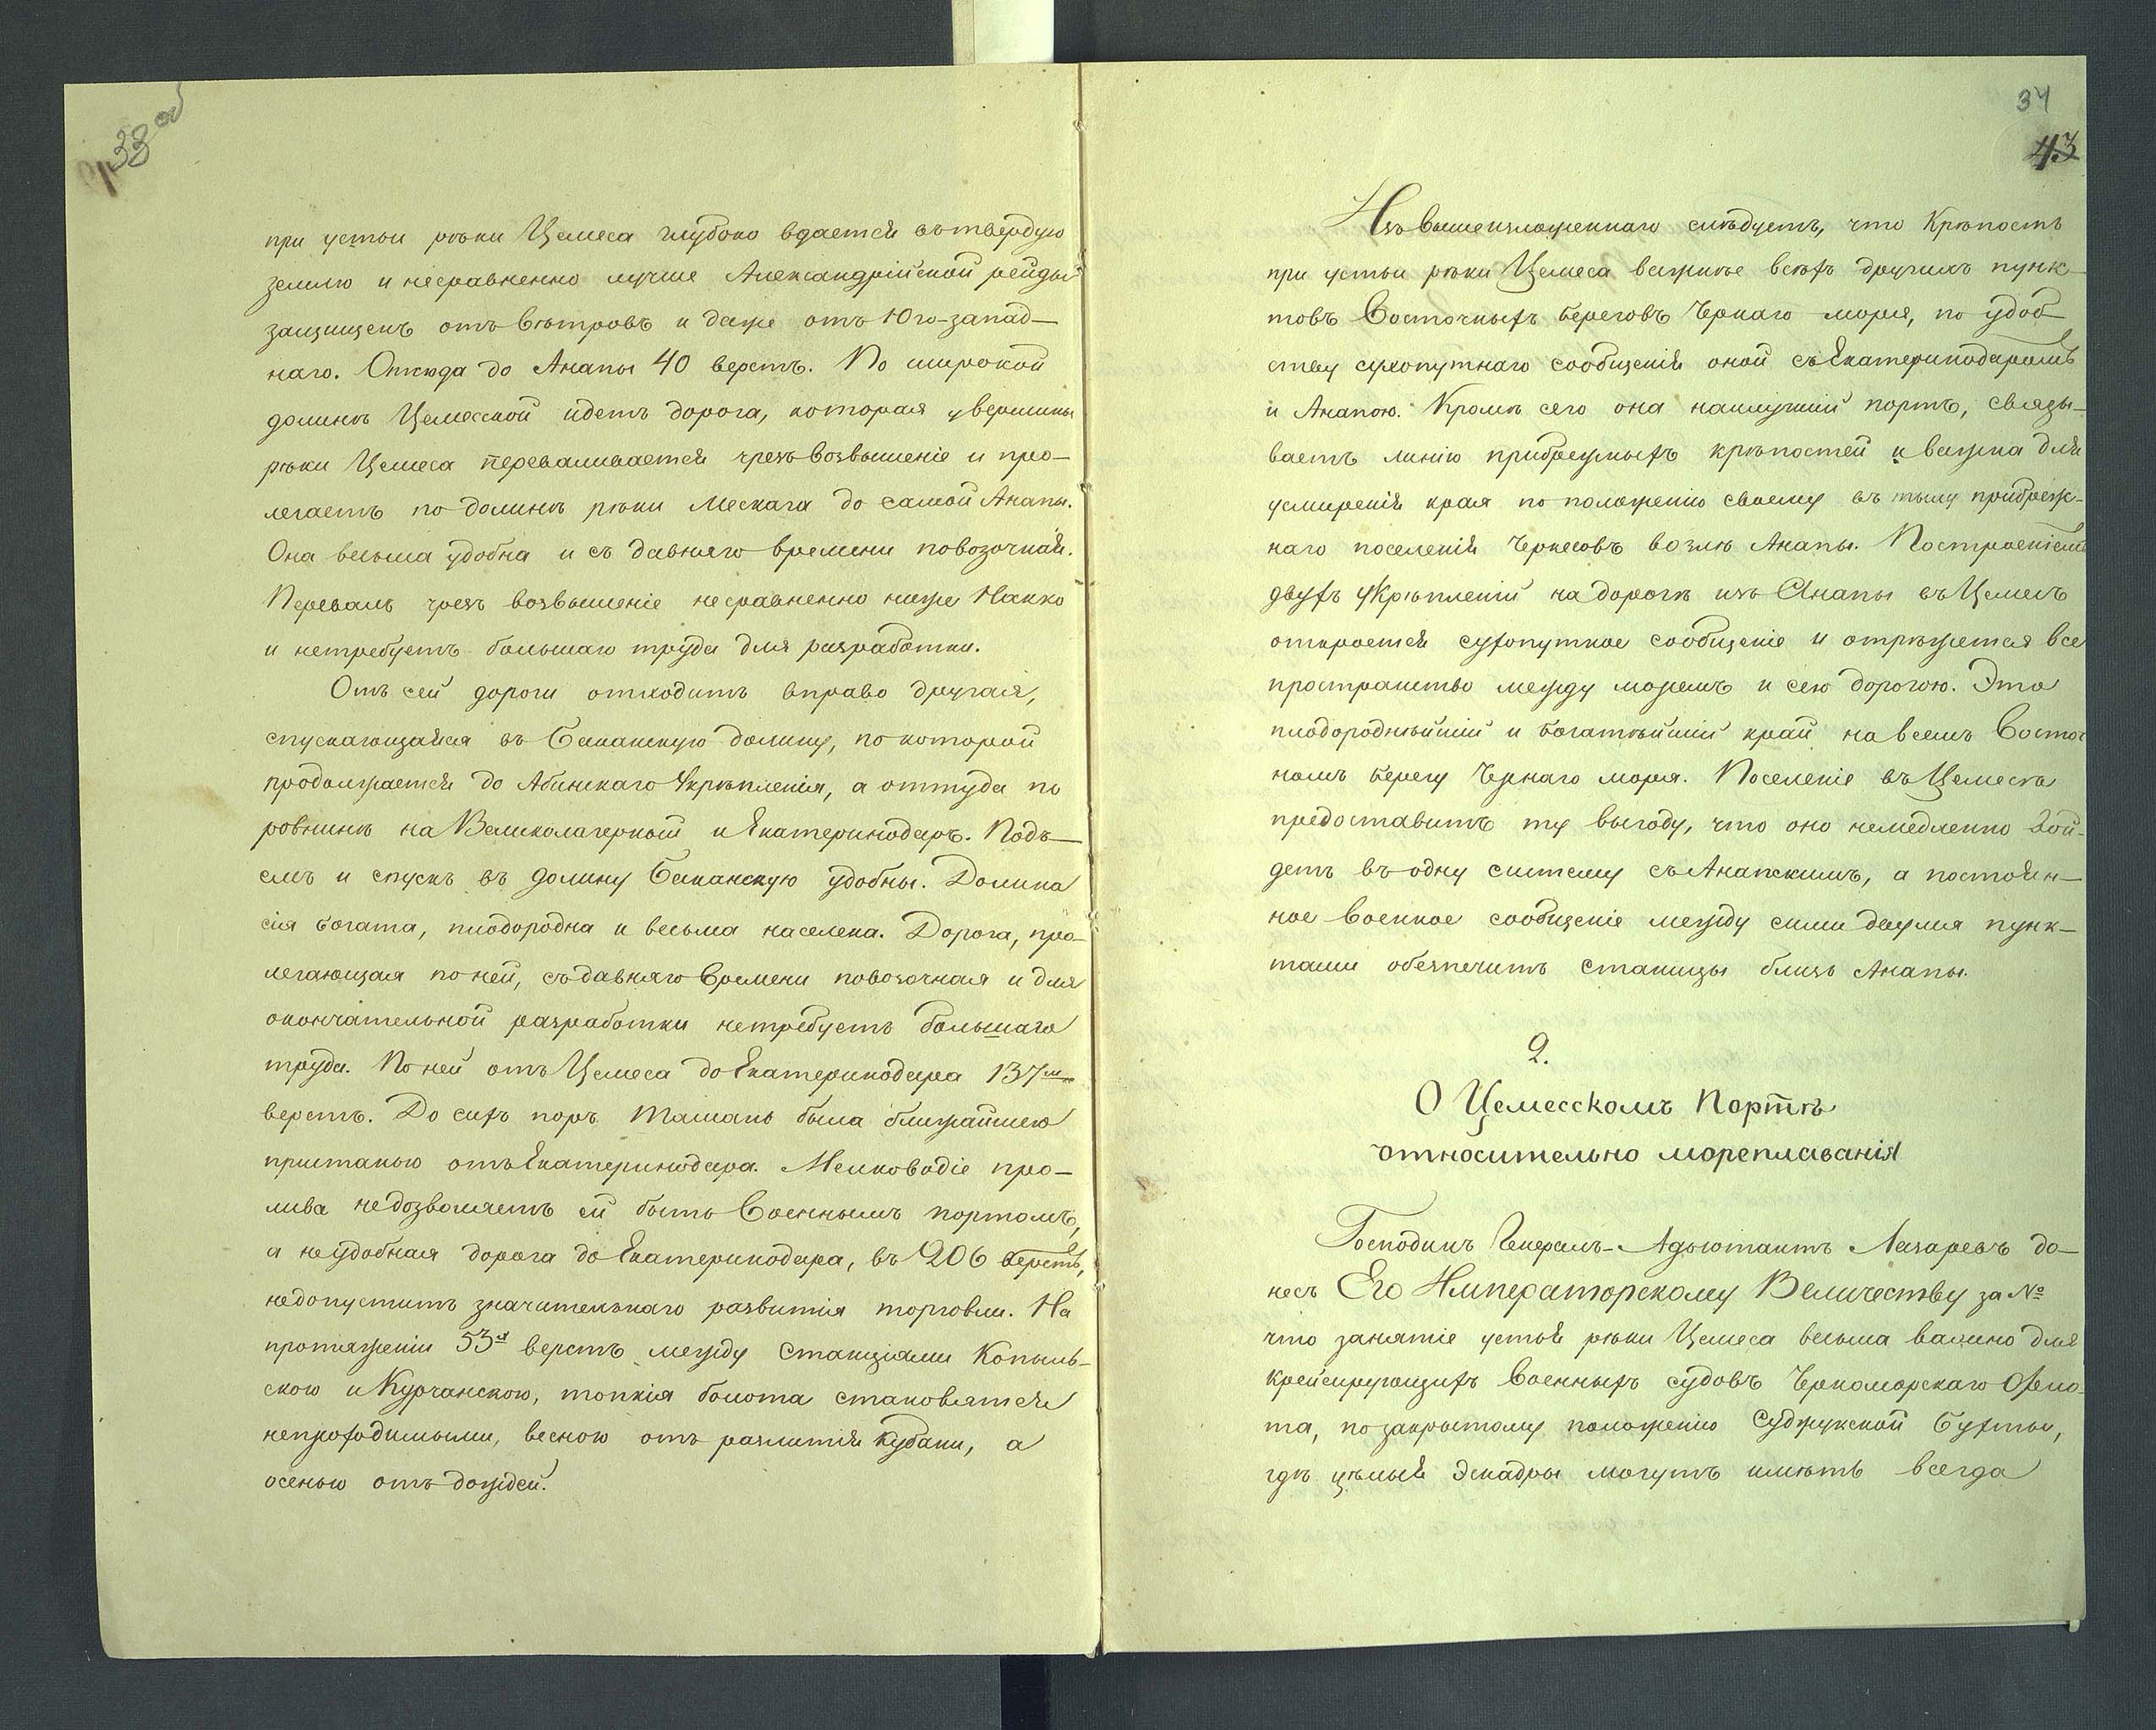 33 об
при устьи рѣки Цемеса глубоко вдается въ твердую
землю и несравненно лучше Александрійской рейды
защищенъ отъ вѣтровъ и даже отъ Юго-запад-
наго. Отсюда до Анапы 40 верстъ. По широкой
долинѣ Цемесской идетъ дорога, которая у вершины
рѣки Цемеса переваливается чрезъ возвышеніе и про-
легаетъ по долинѣ рѣки Мескага до самой Анапы.
Она весьма удобна и съ давняго времени повозочная.
Перевалъ чрезъ возвышеніе несравненно ниже Накко
и нетребуетъ большаго труда для разработки.
Отъ сей дороги отходитъ вправо другая,
спускающаяся въ Баканскую долину, по которой
продолжается до Абинскаго Укрѣпленія, а оттуда по
ровнинѣ на Великолагерный и Екатеринодаръ. Подъ-
емъ и спускъ въ долину Баканскую удобны. Долина
сія богата, плодородна и весьма населена. Дорога, про-
легающая по ней, съ давняго времени повозочная и для
окончательной разработки нетребуетъ большаго
труда. По ней отъ Цемеса до Екатеринодара 137м
верстъ. До сихъ поръ Тамань была ближайшею
пристанью отъ Екатеринодара. Мелководіе про-
лива недозволяетъ ей быть Военнымъ портомъ,
а неудобная дорога до Екатеринодара, въ 206 верстъ,
недопуститъ значительнаго развитія торговли. На
протяженіи 53х верстъ между Станціями Копыль-
скою и Курчанскою, топкія болота становятся
непроходимыми, весною отъ разлитія Кубани, а
осенью отъ дождей.
34
43
Изъ вышеизложеннаго слѣдуетъ, что Крѣпость
при устьи рѣки Цемеса важнѣе всѣхъ другихъ пунк-
товъ Восточныхъ береговъ Чернаго моря, по удоб-
ству сухопутнаго сообщенія оной съ Екатеринодаромъ
и Анапою. Кромѣ сего она наилучшій портъ, связы-
ваетъ линію прибрежныхъ крѣпостей и важна для
усмиренія края по положенію своему въ тылу прибреж-
наго поселенія Черкесовъ возлѣ Анапы. Построеніемъ
двухъ Укрѣпленій на дорогѣ изъ Анапы въ Цемесъ
откроется сухопутное сообщеніе и отрѣжется все
пространство между моремъ и сею дорогою. Это
плодороднѣйшій и богатѣйшій край на всемъ Восточ
номъ берегу Чернаго моря. Поселеніе въ Цемесѣ
предоставитъ ту выгоду, что оно немедленно вой-
детъ въ одну систему съ Анапскимъ, а постоян-
ное военное сообщеніе между сими двумя пунк-
тами обезпечитъ станицы близъ Анапы.
2.
О Цемесскомъ Портѣ
относительно мореплаванія
Господинъ Генералъ-Адъютантъ Лазаревъ до-
несъ Его Императорскому Величеству за №
что занятіе устья рѣки Цемеса весьма важно для
крейсирующихъ Военныхъ судовъ Черноморскаго Фло-
та, по закрытому положенію Суджукской бухты,
гдѣ цѣлыя Эскадры могутъ имѣть всегда